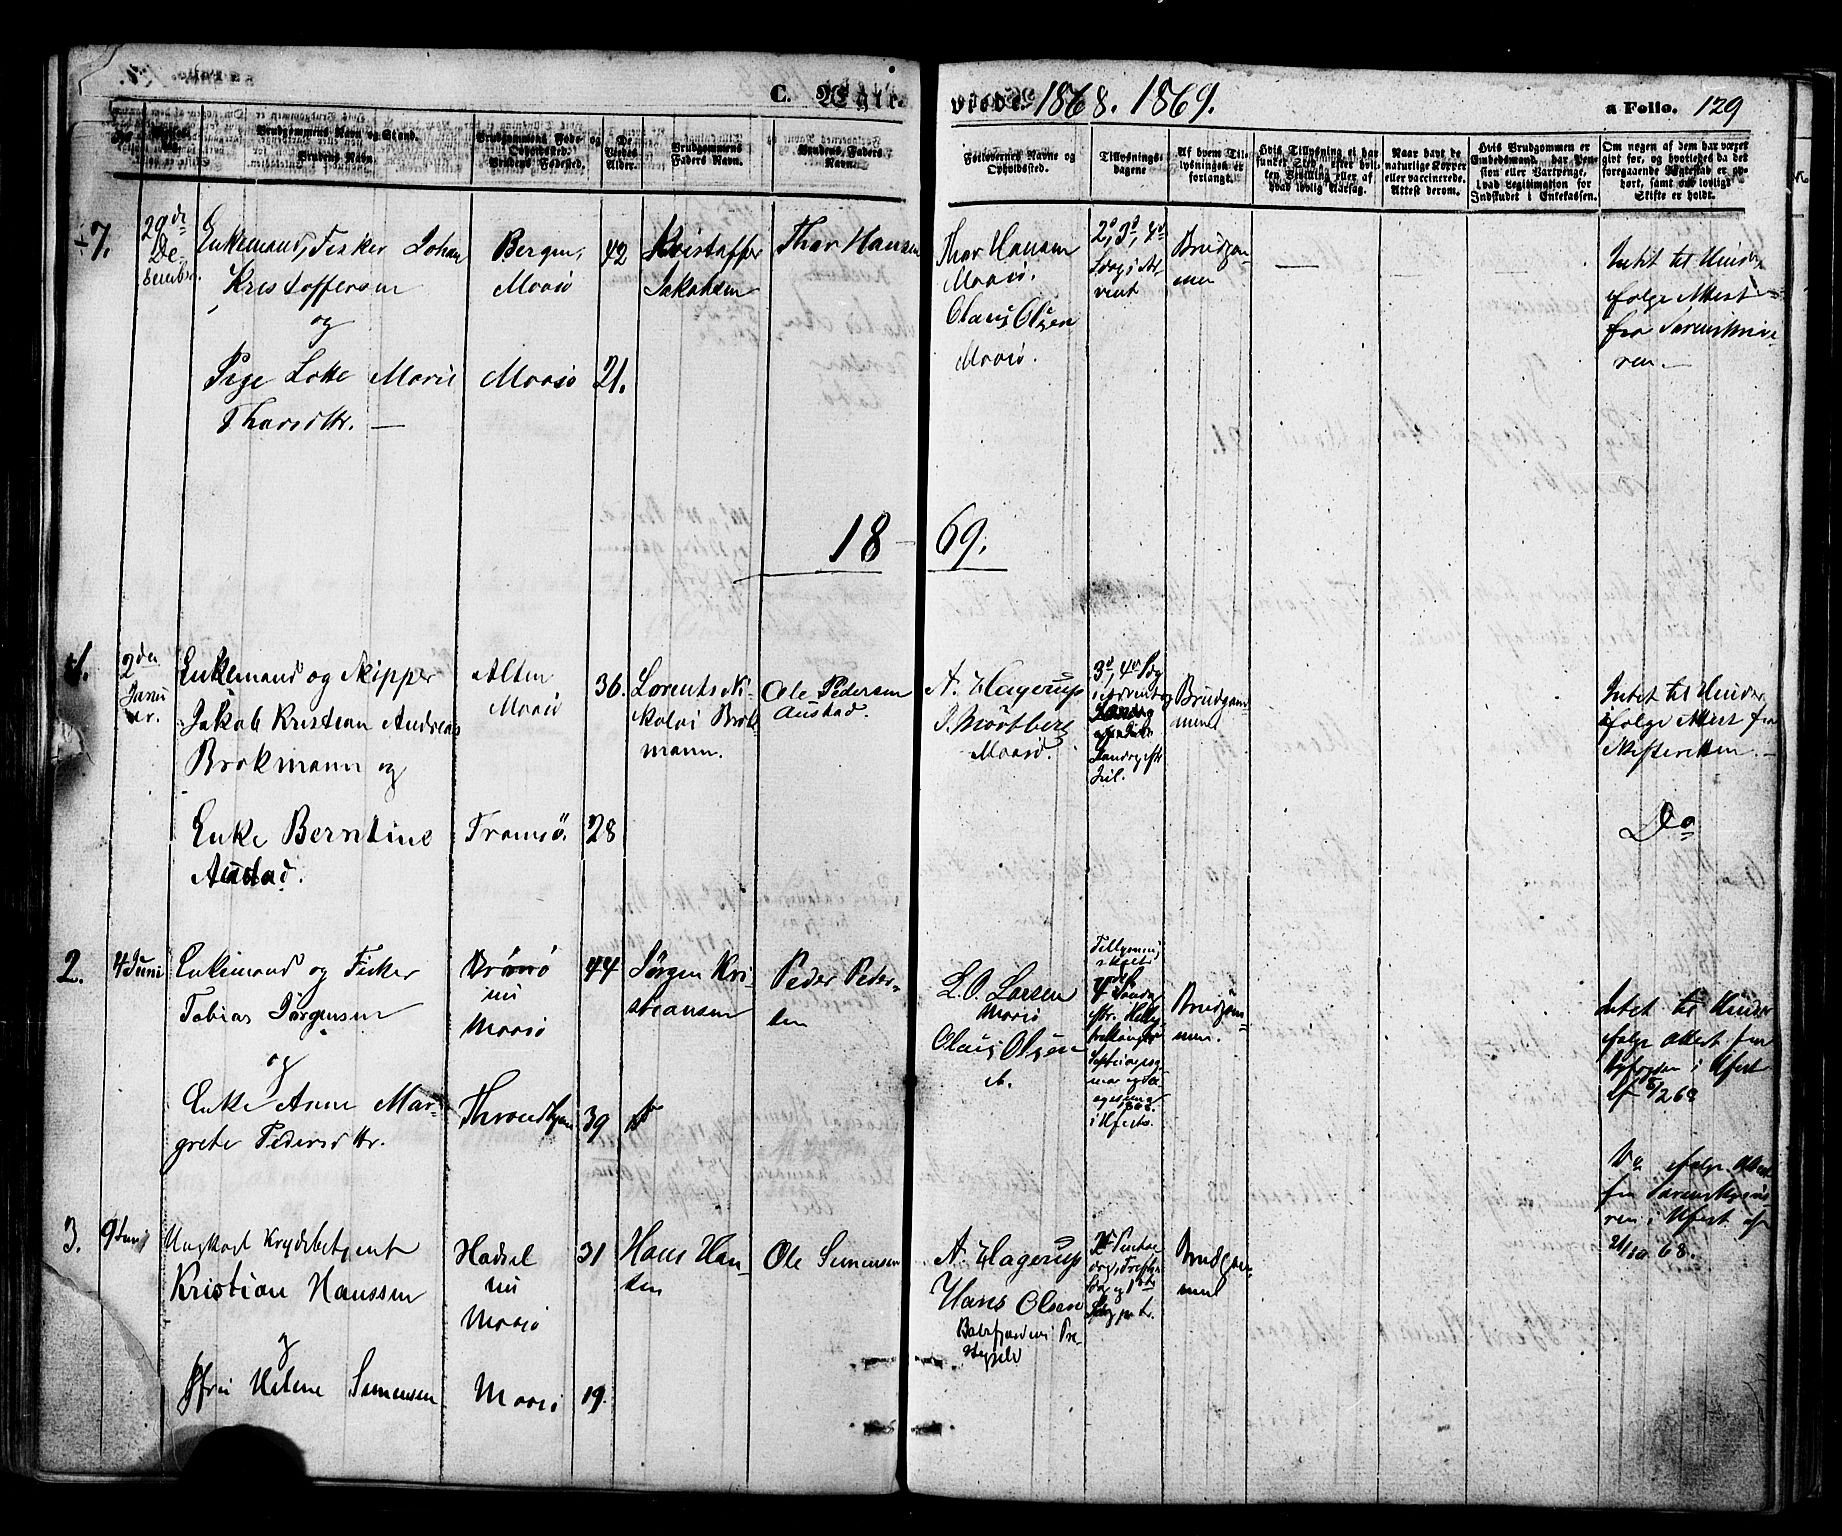 C. Ægte-
viede. 1868. 1869.
a Folio. 129
Brudgommens Navn og Stand.
Brudens Navn.
Brudgommens Føde- og
Opholdssted.
Brudens Fødested.
De
Viedes
Alder.
Brudgommens
Faders Navn.
Brudens Faders
Navn.
Forlovernes Navne og
Opholdssted.
Tillysnings-
dagene
Af hvem Til-
lysningen er
forlangt.
Hvis Tillysning ei har
funket Sted, efter hvil-
ken Bevilling eller af
hvad lovlig Aarsag.
Naar havt de
naturlige Kopper
eller vaccinerede.
Attest derom.
Hvis Brudgommen er
Embedsmand, har Pen-
sion eller Vartpenge,
hvad Legitimation for
Indskudet i Enkekassen.
Om nogen af dem har været
gift før, og hvorledes da det
foregaaende Ægteskab er op-
hørt, samt om lovligt
Skifte er holdt.
7.
29de
De-
cember
Enkemand, Fisker Johan
Kristoffersen
og
Pige Lotte Marie
Thorsdttr.
Bergen,
Maasø
Maasø
42
21.
Kristoffer
Jakobsen
Thor Hansen
Thor Hansen
Maasø.
Claus Olsen
Maasø.
2d, 3d, 4d
Sdag i Ad-
vent
Brudgom-
men
Intet til Hinder
ifølge Attest
fra Sorenskrive-
ren.
18 69.
1.
2den
Janu
ar.
Enkemand og Skipper
Jakob Kristian Andreas
Brokmann og
Enke Berntine
Austad.
Alten
Maasø
Tromsø.
36.
28
Lorents Ni-
kolai Brok-
mann.
Ole Pedersen
Austad.
A. Hagerup
Maasø.
3d, 4d Sdg
i Advent og
Søndag efter
Jul.
Brudgom-
men
Intet til Hinder
ifølge Attest fra
Skifteretten.
Do
2.
4 Juni
Enkemand og Fisker
Tobias Jørgensen
og
Enke Anne Mar-
grete Pedersdttr.
nu
Maasø
Throndhjem
44
39
Jørgen Kri-
stiansen
Peder Peder-
sen
L. O. Larsen
Maasø
Claus Olsen
Brudgom-
men.
Intet til Hinder
ifølge Attest fra
i Hfest
Do ifølge Attest
fra Sorenskrive-
ren i Hfest af
21/10 68.
3.
9 Juni
Ungkarl Krydsbetjent
Kristian Hanssen
og
Jfru Helene Simensen
Hadsel
nu
Maasø
Maasø
31
19.
Hans Han-
sen
Ole Simensen
A. Hagerup
Hans Olsen
Balsfjordens Præ-
stegjeld
Brudgom-
men